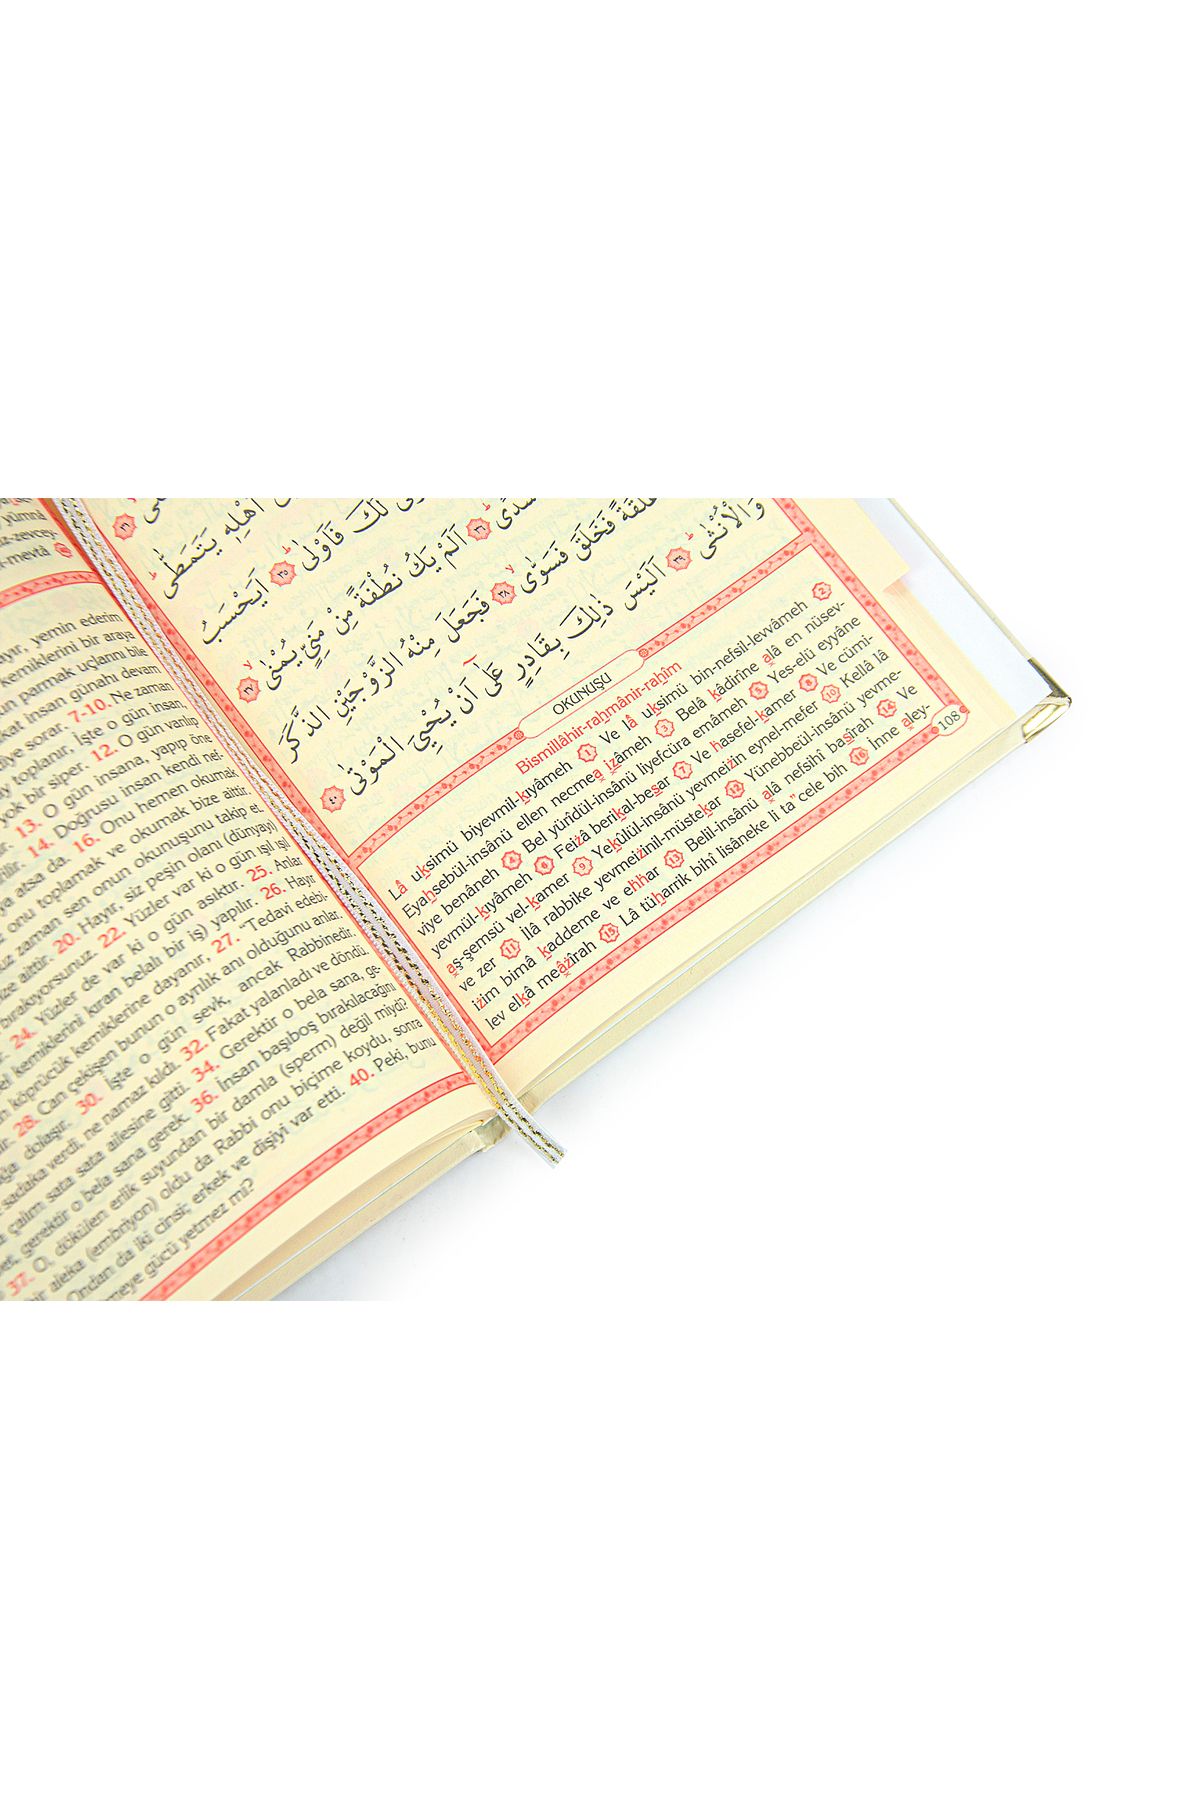 yümnâ
z-zevcey-
-mevtâ
ayır, yemin ederim
kemiklerini bir araya
un parmak uçlarını bile
kat insan günahı devam
diye sorar. 7-10. Ne zaman
ay toplanır, İşte o gün insan,
yok bir siper. 12. O gün varılıp
13. O gün insana, yapıp öne
14. Doğrusu insan kendi nef-
ya atsa da. 16. Onu hemen okumak
z onu toplamak ve okumak bize aittir.
uz zaman sen onun okunuşunu takip et.
ize aittir. 20. Hayır, siz peşin olanı (dünyayı)
bırakıyorsunuz. 22. Yüzler var ki o gün ışıl ışıl
24. Yüzler de var ki o gün asıktır. 25. Anlar
bel kemiklerini kıran belalı bir iş) yapılır. 26. Hayır
köprücük kemiklerine dayanır, 27. "Tedavi edebi-
28. Can çekişen bunun o ayrılık anı olduğunu anlar.
dolaşır. 30. İşte o gün sevk, ancak Rabbinedir.
sadaka verdi, ne namaz kıldı. 32. Fakat yalanladı ve döndü.
çalım sata sata ailesine gitti. 34. Gerektir o bela sana, ge-
gerektir o bela sana gerek. 36. İnsan başıboş bırakılacağını
37. O, dökülen erlik suyundan bir damla (sperm) değil miydi?
bir aleka (embriyon) oldu da Rabbi onu biçime koydu, sonra
Ondan da iki cinsi; erkek ve dişiyi var etti. 40. Peki, bunu
meye gücü yetmez mi?
اَهْلِه۪ يَتَمَطّٰىۜ ﴿٣٣﴾
لَكَ فَاَوْلٰىۜ ﴿٣٥﴾ اَيَحْسَبُ
سُدًىۜ ﴿٣٦﴾ اَلَمْ يَكُ نُطْفَةً مِنْ مَنِيٍّ يُمْنٰىۙ ﴿٣٧﴾
عَلَقَةً فَخَلَقَ فَسَوّٰىۙ ﴿٣٨﴾ فَجَعَلَ مِنْهُ الزَّوْجَيْنِ الذَّكَرَ
وَالْاُنْثٰىۜ ﴿٣٩﴾ اَلَيْسَ ذٰلِكَ بِقَادِرٍ عَلٰٓى اَنْ يُحْيِيَ الْمَوْتٰى ﴿٤٠﴾
OKUNUŞU
Bismillâhir-raḥmânir-raḥîm
Lâ uḳsimü biyevmil-ḳıyâmeh 1 Ve lâ uḳsimü bin-nefsil-levvâmeh 2
Eyaḥsebül-insânü ellen necmea ıẓâmeh 3 Belâ ḳâdirîne alâ en nüsev-
viye benâneh 4 Bel yürîdül-insânü liyefcüra emâmeh 5 Yes-elü eyyâne
yevmül-ḳıyâmeh 6 Feiżâ beriḳal-beṣar 7 Ve ḣasefel-ḳamer 8 Ve cümi-
aş-şemsü vel-ḳamer 9 Yeḳûlül-insânü yevmeiżin eynel-mefer 10 Kellâ lâ
ve zer 11 İlâ rabbike yevmeiżinil-müsteḳar 12 Yünebbeül-insânü yevme-
iżim bimâ ḳaddeme ve eḣḣar 13 Belil-insânü alâ nefsihî baṣîrah 14 Ve
lev elḳâ meâżîrah 15 Lâ tüḥarrik bihî lisâneke li ta"cele bih 16 İnne aley-
108